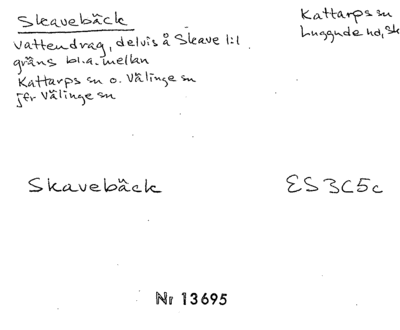 Skavebäck
Kattarps sn
Luggude hd, Sk
vattendrag, delvis å Skave 1:1
gräns bl.a. mellan
Kattarps sn o. Välinge sn
jfr Välinge sn
Skavebäck
ES 3C5c
Nr 13695